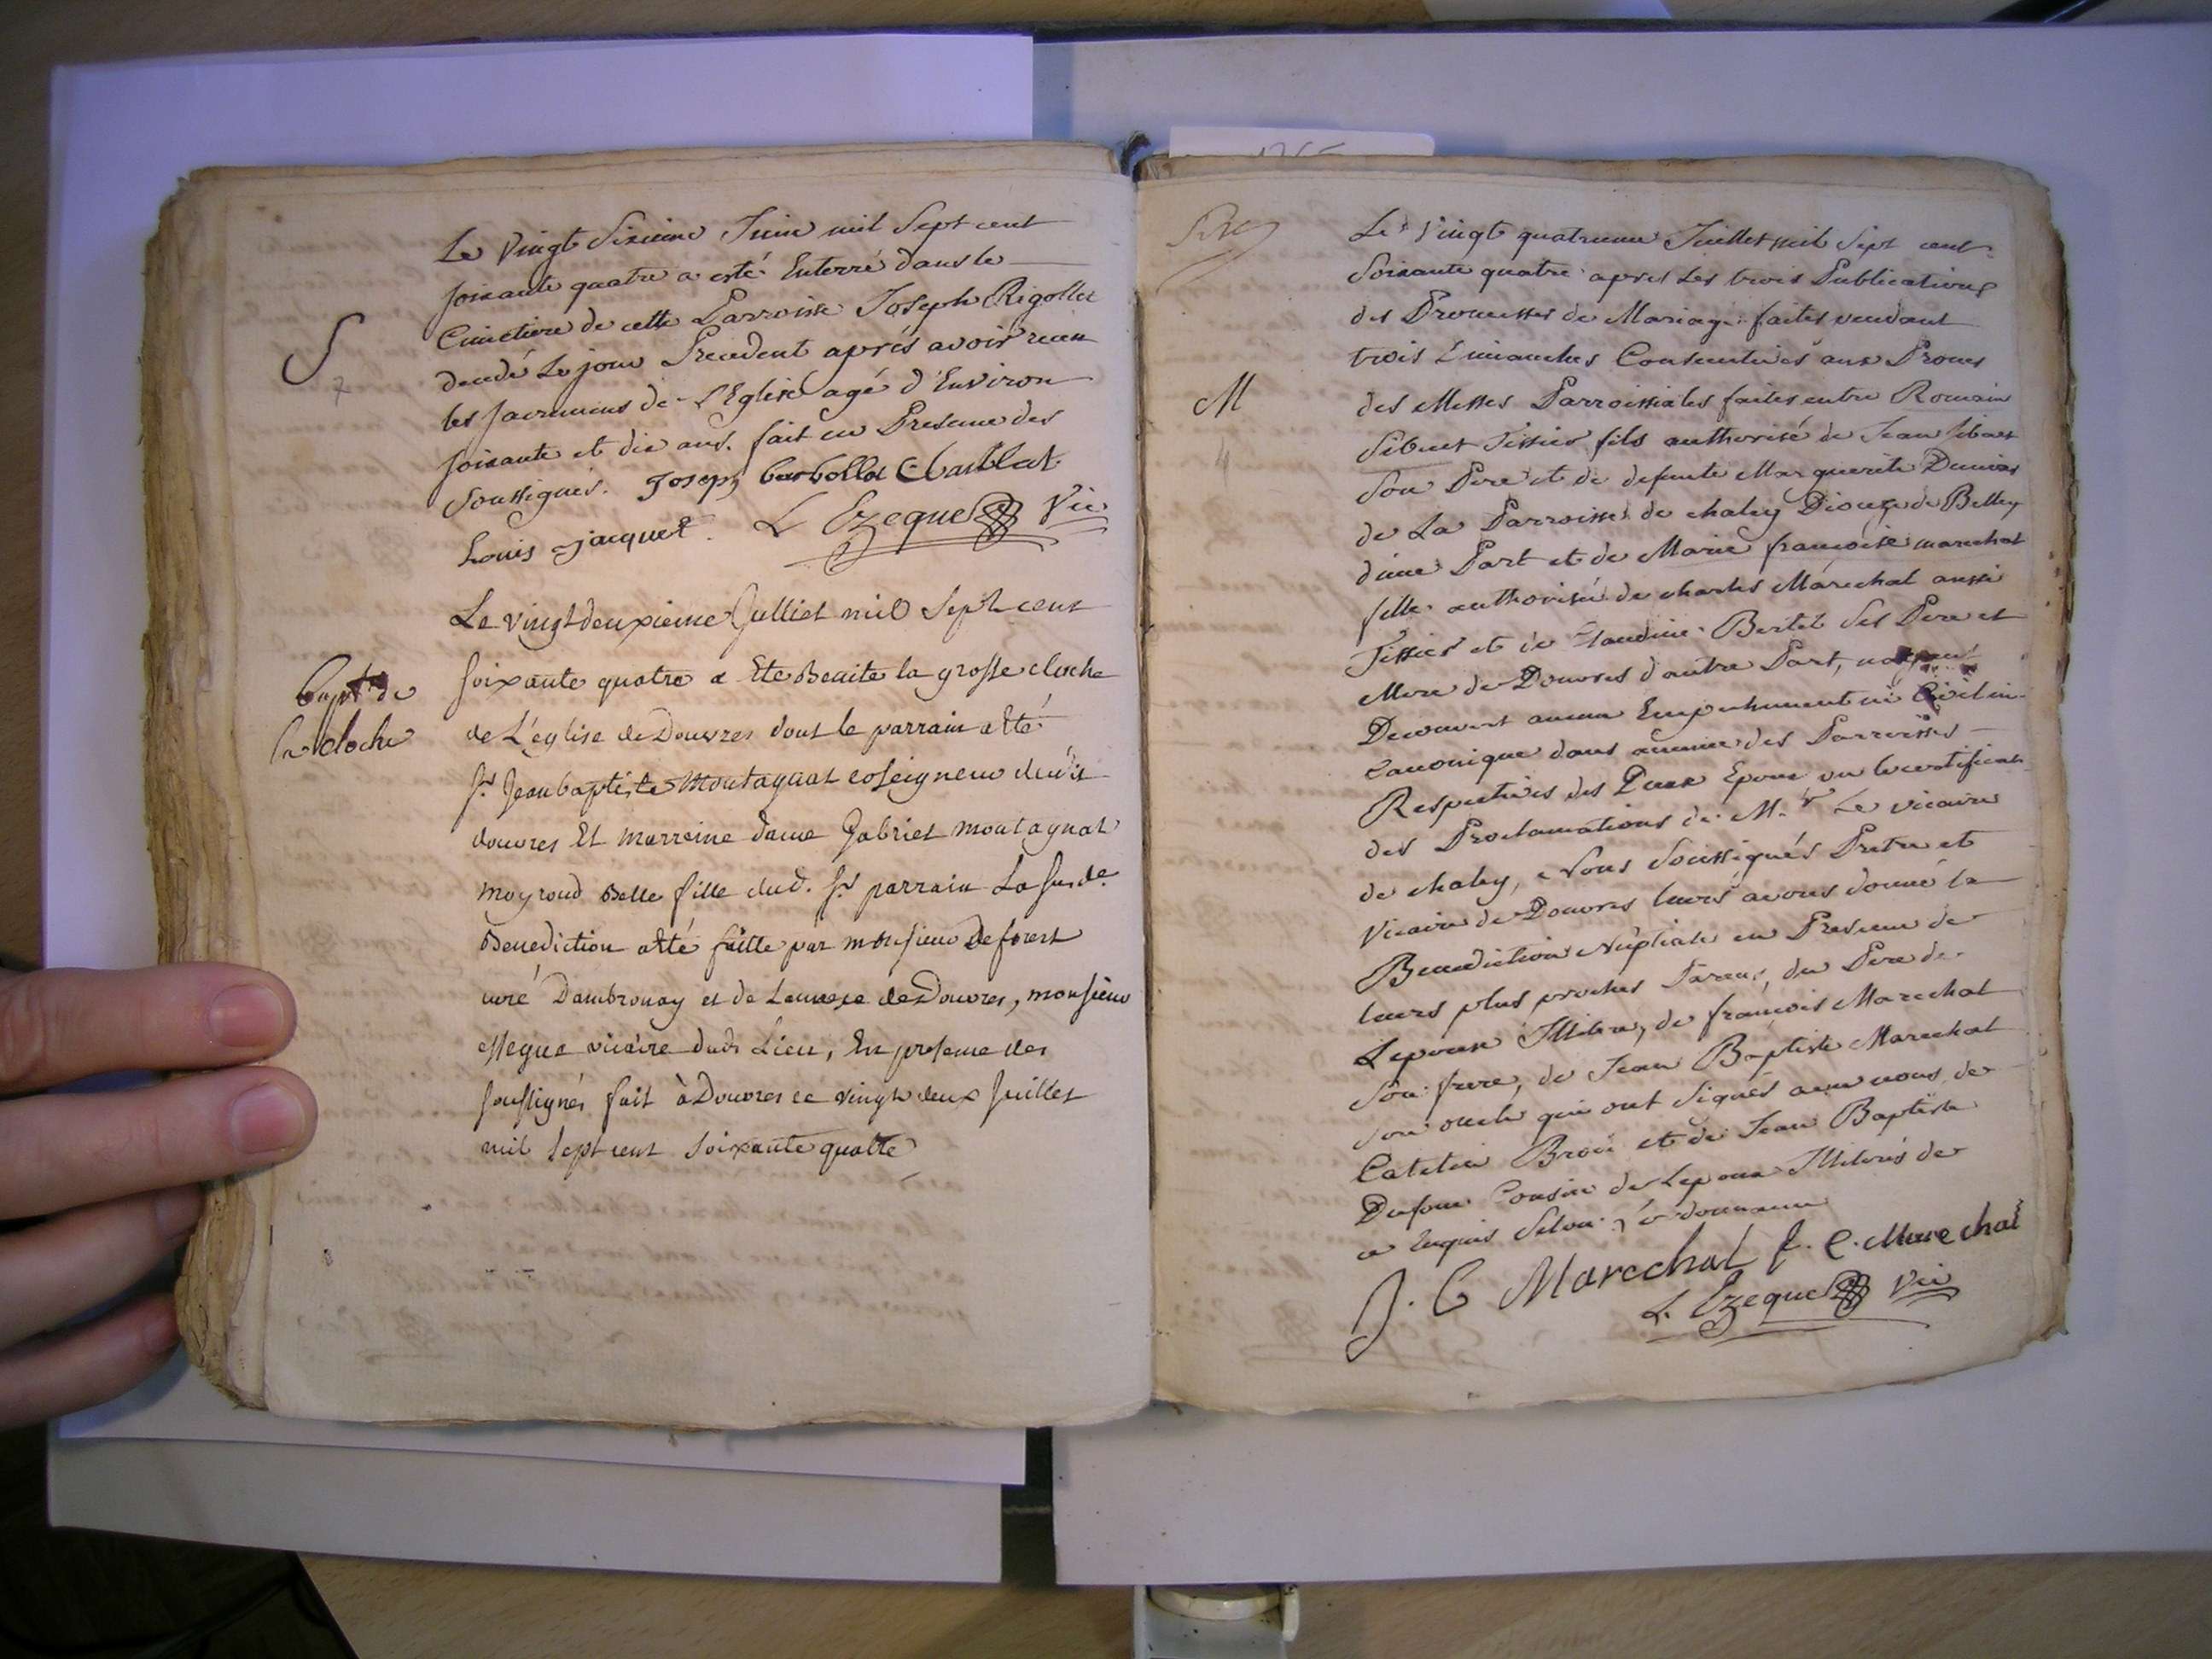 Le Vingt Sixieme Juin mil Sept cent
soixante quatre a esté Enterré dans le
Cimetiere de cette Parroisse Joseph Rigollet
decedé Le jour Precedent aprés avoir recu
les sacremens de L'Eglise agé d'Environ
soixante et dix ans. fait en Presence des
Soussignés. Joseph barbollat
Louis jacquet. L Ezeque Vic
S
Bapt. de
la cloche
Le vingt deuxieme Julliet mil Sept cent
soixante quatre a Ete Benite la grosse cloche
de L'église de Douvres dont le parrain a êté
Sr. Jean baptiste Montagnat coseigneur dudit
douvres Et marreine dame Gabriel montagnat
moyroud Belle fille dud. Sr parrain La susde.
Benediction a êté faitte par monsieur Deforest
curé Dambronay et de Lannexe de Douvres, monsieur
esseque vicaire dudt Lieu, En presence des
soussignés fait à Douvres ce vingt deux Juillet
mil Sept cent Soixante quatre
M
4
Le Vingt quatrieme Juillet mil Sept cent
Soixante quatre apres Les trois Publications
des Promesses de Mariage faites pendant
trois Dimanches Consecutives aux Prones
des Messes Parroissiales faites entre Romain
Sibuet Tissier fils authorisé de Jean Sibuet
Son Pere et de defunte Marguerite
de La Parroisse de chaley Diocese de Belley
d'une Part et de Marie francoise marechal
fille authorisée de charles Maréchal aussi
Tissier et de Claudine Bertet Ses Pere et
Mere de Douvres d'autre Part,
Decouvert aucun Empechement ni Civil ni
Canonique dans aucune des Parroisses
Respectives des Deux Epoux vu le certificat
des Proclamations de M.r Le vicaire
de chaley, Nous Soussignés Pretre et
Vicaire de Douvres leurs avons donné la
Benediction Nuptiale en Presence de
leurs plus proches Parens, du Pere de
Lepoux Illitere, de francois Marechal
Son frere, de Jean Baptiste Marechal
Son oncle qui ont Signés avec nous, de
Catelin Broü et de Jean Baptiste
Dufour Cousin de Lepoux Illiterés de
ce Enquis Selon L'ordonnance
J. B Marechal f. C. Marechal
L. Ezeque Vic